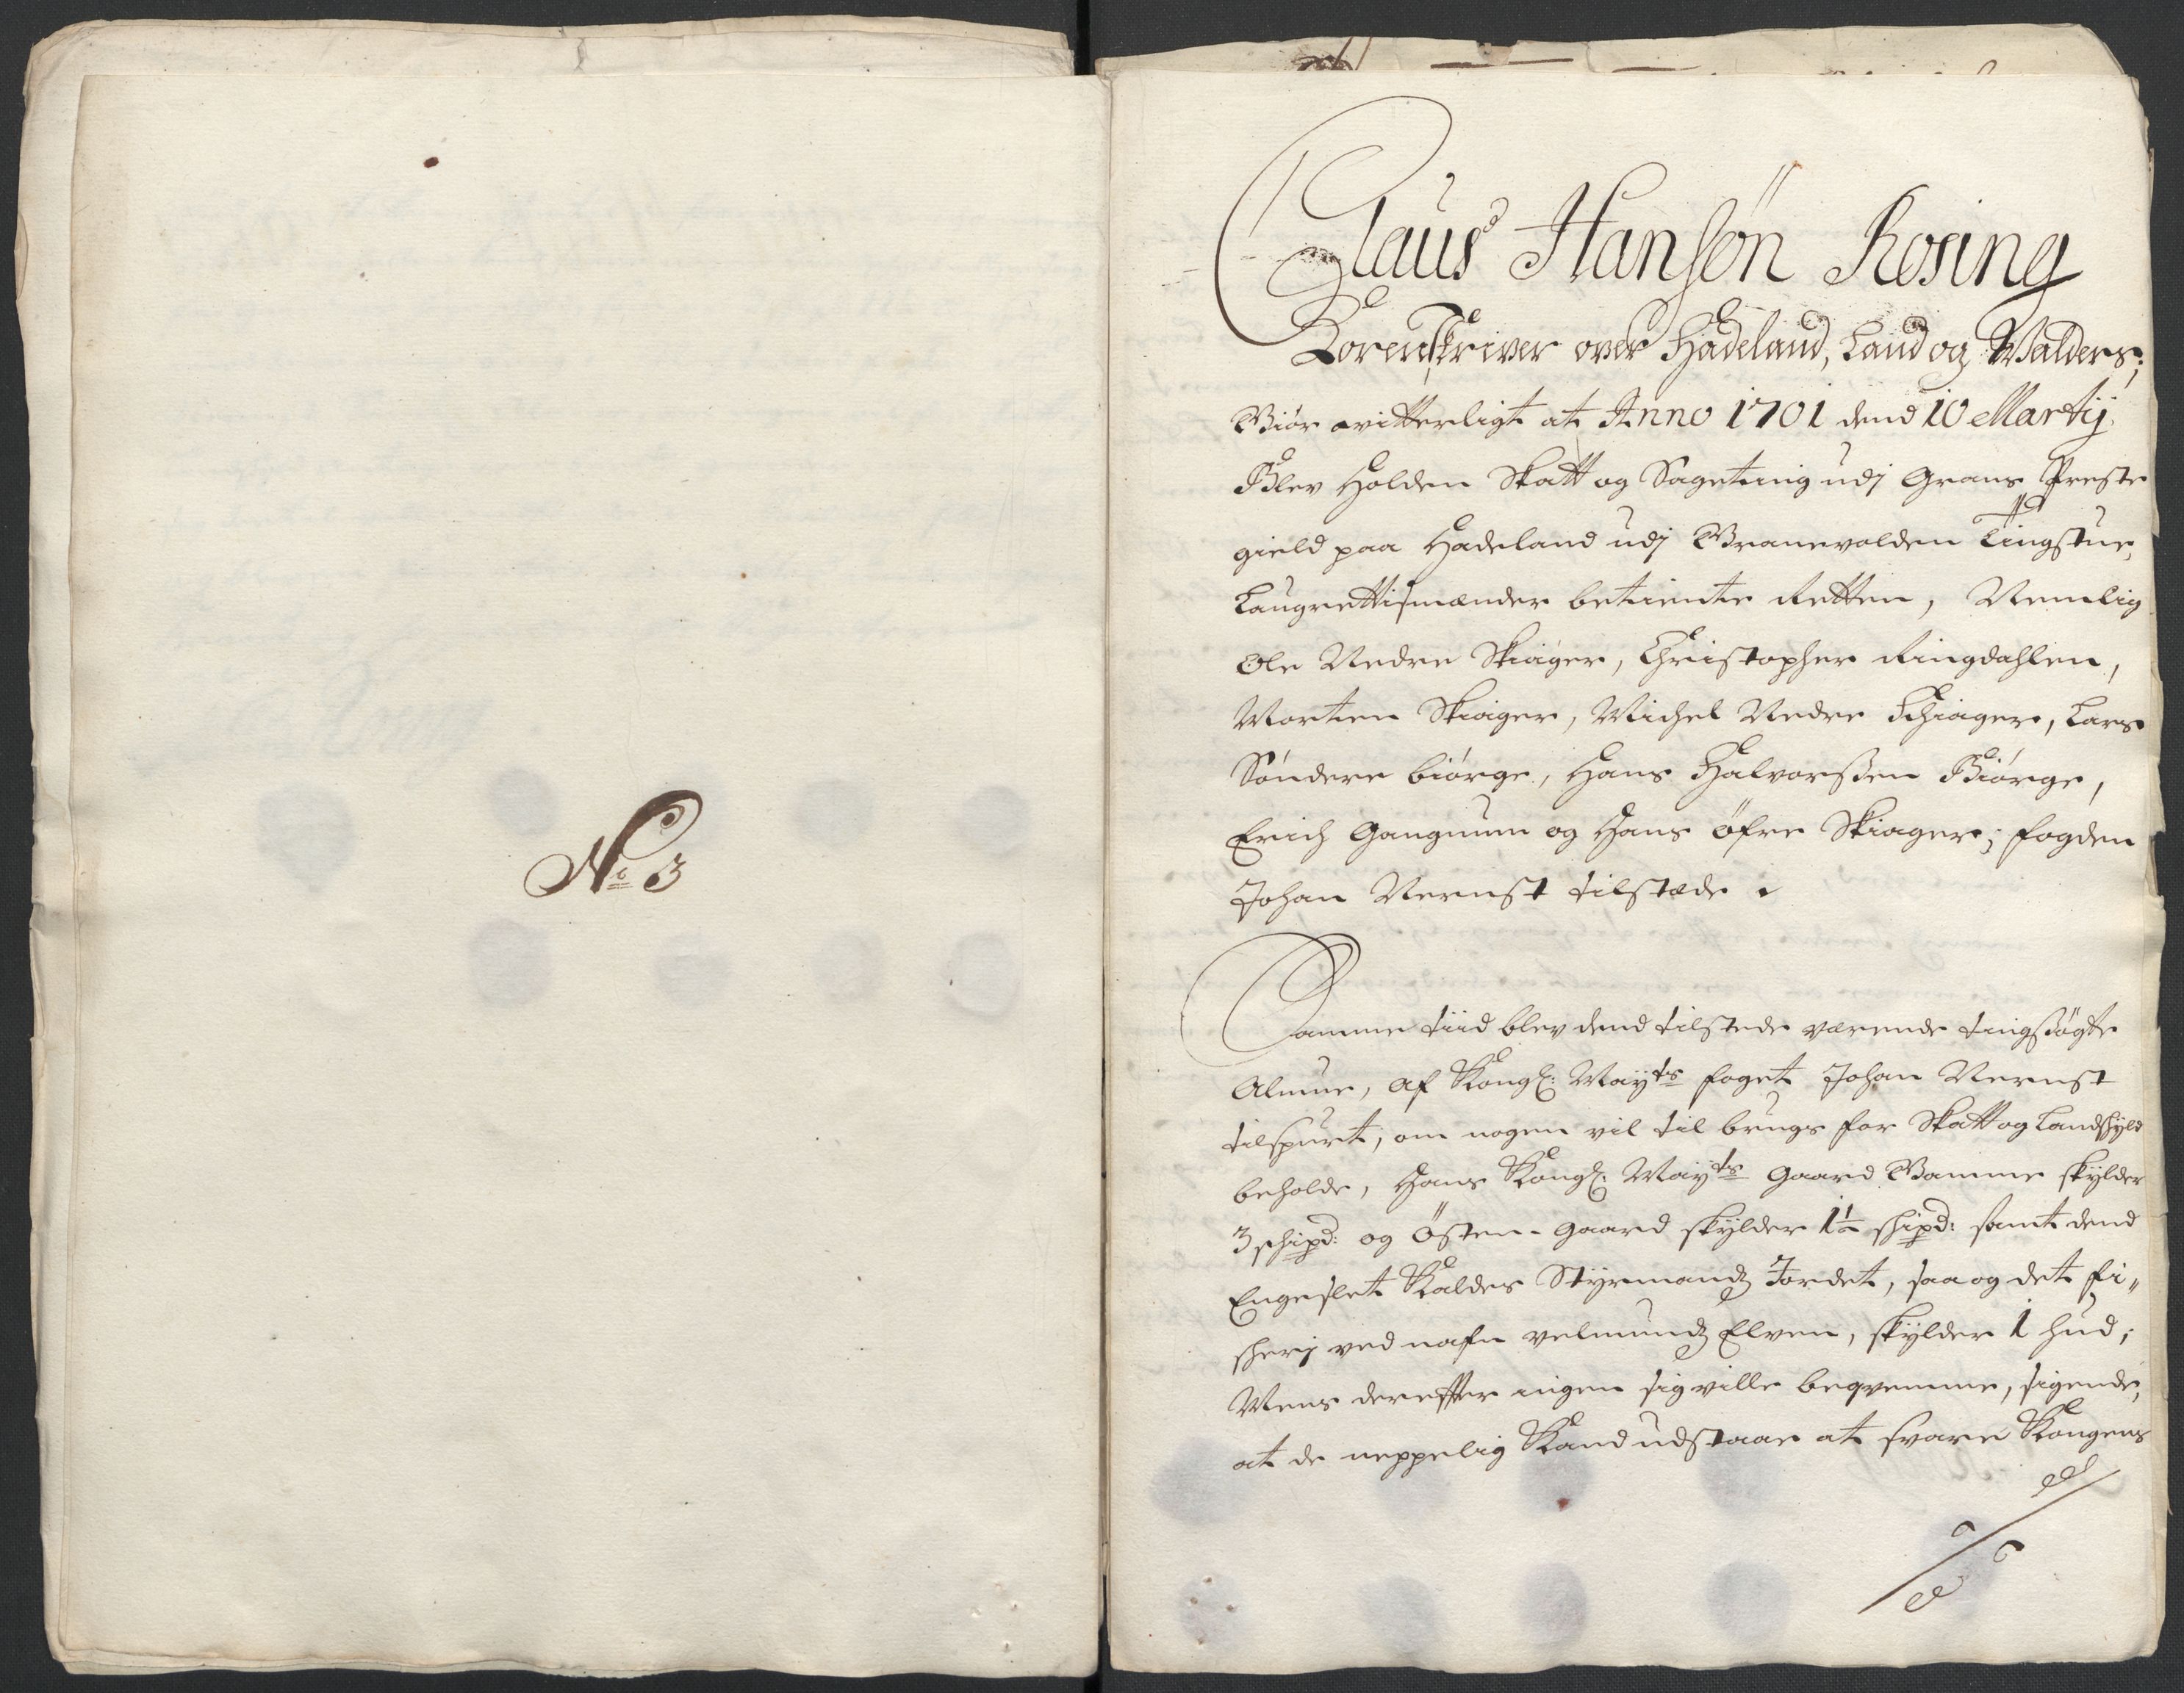 No 3
Claus Hansøn Rosing
Sorenskriver over Hadeland, Land og Walders;
Giør vitterligt at Anno 1701 dend 10 Martij
Blev Holden Skatt og Sageting udj Grans Preste
gield paa Hadeland udj Granevolden Tingstue,
Laugrettismænder betiente Retten, Nemlig
Ole Nedre Skiager, Christopher Ringdahlen,
Morten Skiager, Michel Nedre Schiager, Lars
Søndere biørge, Hans Halvorsen Biørge,
Erich Gangnum og Hans øfre Skiager; fogden
Johan Nernst tilstæde.
Samme tiid blev dend tilstede værende tingsøgte
Almue, af Kongl: Mayts foget Johan Nernst
tilspurt, om nogen vil til brugs for Skatt og Landskyld
beholde, Hans Kongl: Mayts Gaard Gamme skylder
3 schipd: og Østen-gaard skylder 1½ schipd: samt dend
Engeslet Kaldes Styrmands Jordet, saa og det fi„
scherj ved nafn velmunds Elven, skylder 1 hud;
Mens derefter ingen sig ville beqvemme, sigende,
at de neppelig Kand udstaae at svare Kongens